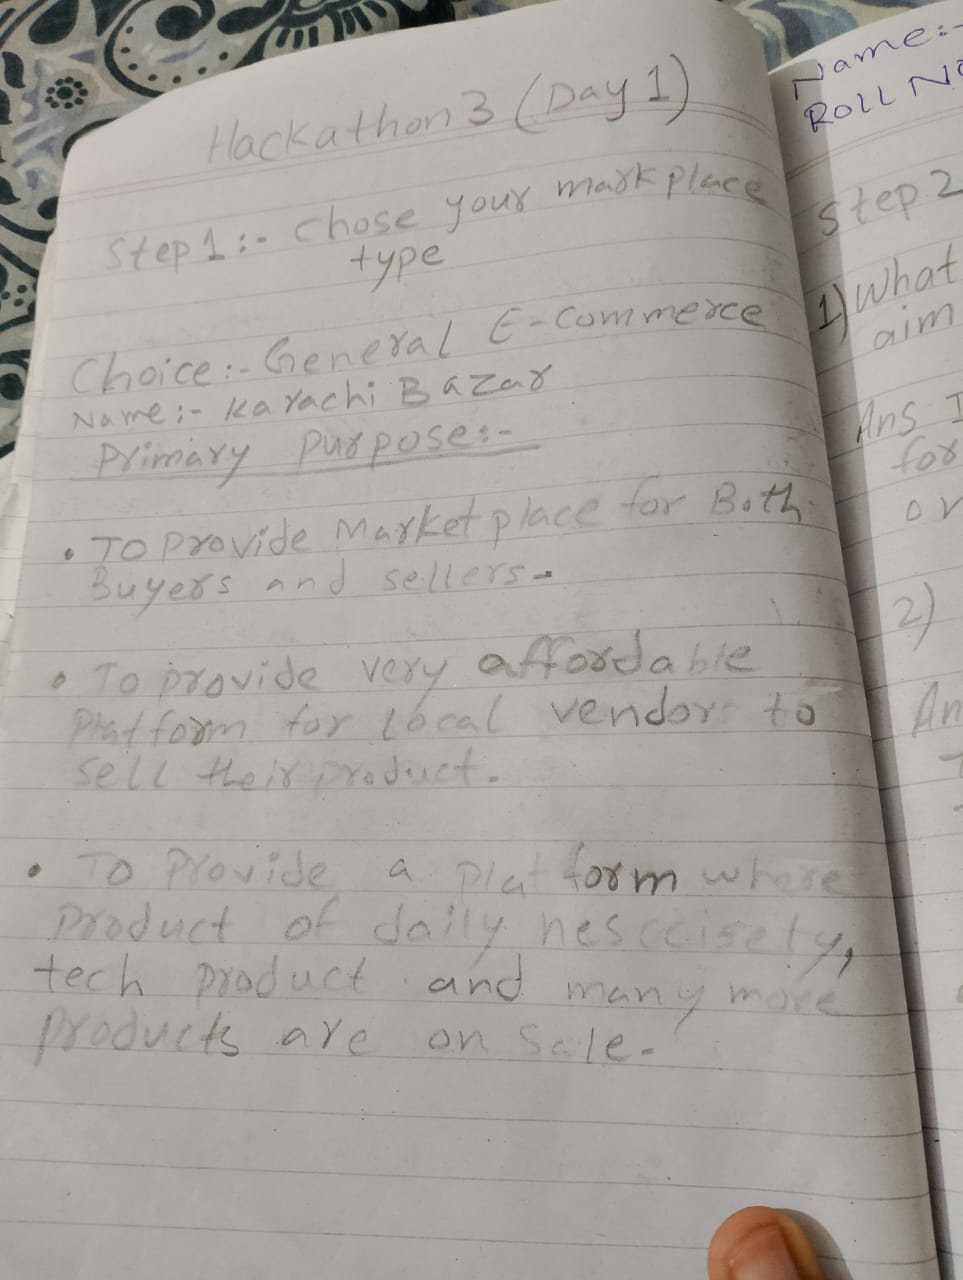 Hackathon 3 (Day 1)
Step 1 :- Chose your markplace
type
Choice :- General E-Commerce
Name :- Karachi Bazar
Primary Purpose :-
• To Provide Marketplace for Both
Buyers and sellers.
• To provide very affordable
Platform for local vendors to
sell their product.
• To Provide a platform where
Product of daily nesccisety,
tech product and many more
products are on Sale.
Name :-
Roll No
Step 2
1) What
aim
Ans I
for
or
2)
An